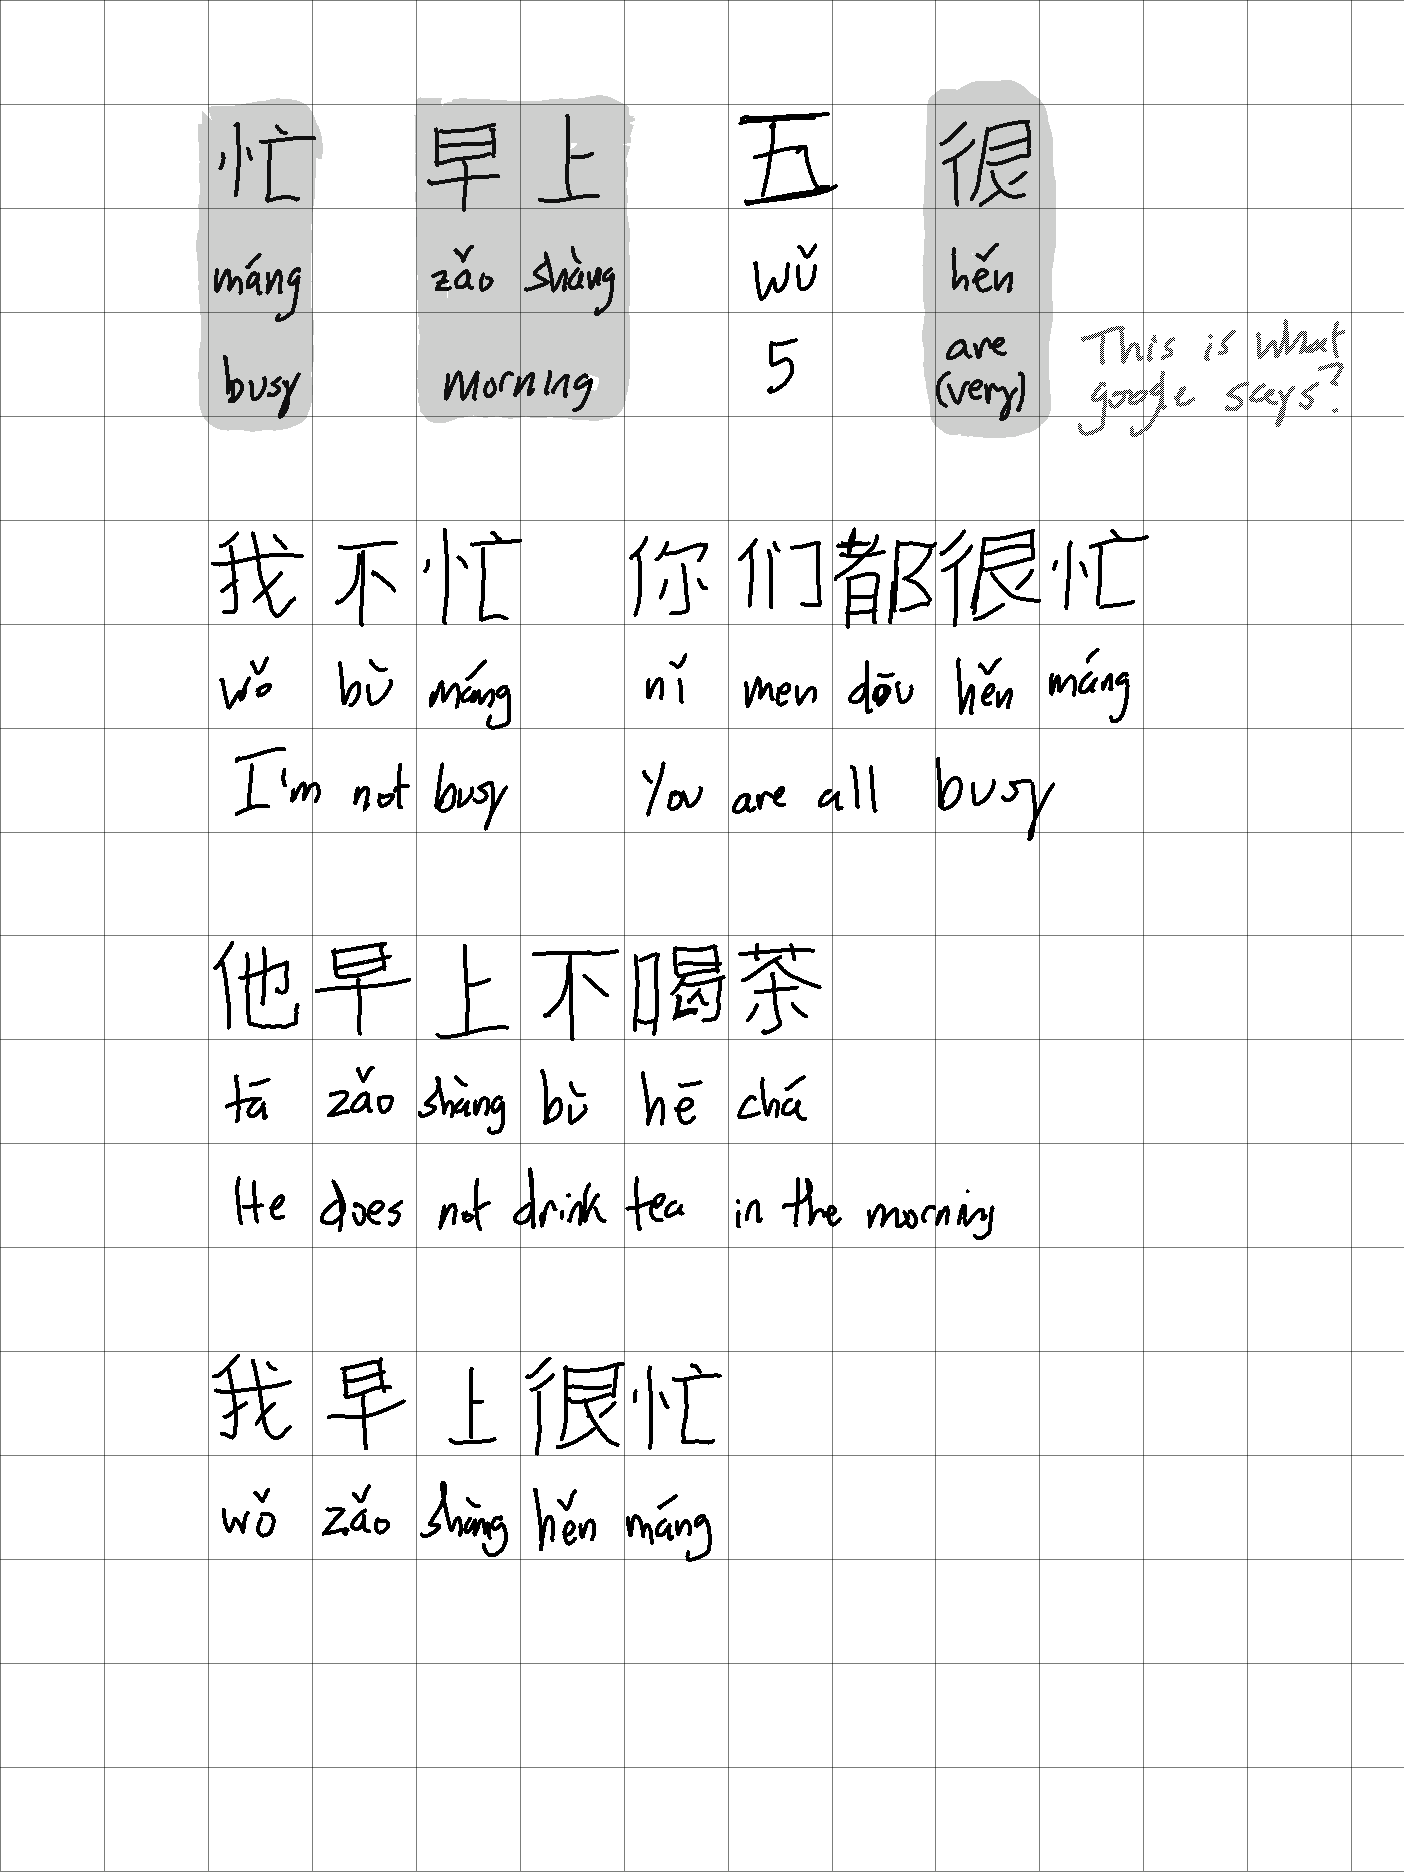 忙 早上 五 很
máng zǎo shàng wǔ hěn
busy morning 5 are (very)
This is what
google says?
我不忙 你们都很忙
wǒ bù máng nǐ men dōu hěn máng
I'm not busy You are all busy
他早上不喝茶
tā zǎo shàng bù hē chá
He does not drink tea in the morning
我早上很忙
wǒ zǎo shàng hěn máng